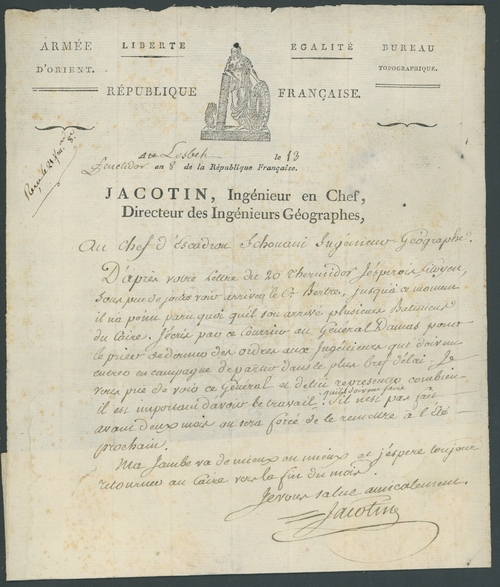 ARMÉE
D'ORIENT.
LIBERTÉ
EGALITÉ
BUREAU
TOPOGRAPHIQUE.
RÉPUBLIQUE FRANÇAISE.
Au Lesbeh le 13
fructidor an 8 de la République Française.
Reçu le 21
JACOTIN, Ingénieur en Chef,
Directeur des Ingénieurs Géographes,
Au Chef d'Escadron Schouani Ingénieur Géographe.
D'après votre Lettre du 20 Thermidor J'espérois Citoyen,
sous peu de jours voir arriver le Cn. Bertre, jusqu'à ce moment
il n'a point paru quoi qu'il soit arrivé plusieurs Batiments
du Caire. J'écris par ce Courrier au Général Damas pour
le prier de donner des ordres aux Ingénieurs qui doivent
entrer en campagne de partir dans le plus bref délai. Je
vous prie de voir ce Général et de lui representer combien
il est important d'avoir le travail qu'ils doivent faire. S'il n'est pas fait
avant deux mois on sera forcé de le remettre à l'Eté
prochain.
Ma Jambe va de mieux en mieux et j'espere toujours
retourner au Caire vers la fin du mois.
Je vous salue amicalement.
Jacotin